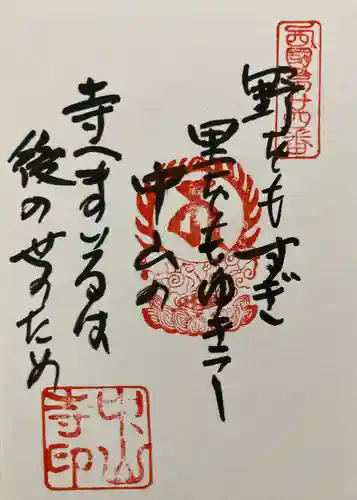 西國第廿四番
野をもすぎ
里をもゆきて
中山の
寺へまいるは
後の世のため
中山寺印